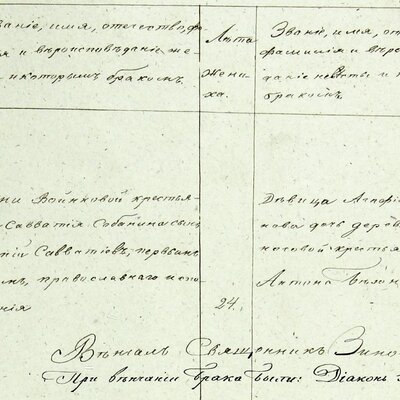 званіе, имя, отечество, фа-
я и вѣроисповѣданіе же-
и которымъ бракомъ.
Лѣта
жени-
ха.
Званіе, имя, от
фамилія и вѣро
даніе невѣсты и к
бракомъ.
ни Войнковой крестья-
Савватія Собакина сынъ
ній Савватіевъ, первымъ
мъ, православнаго испо-
нія
24.
Дѣвица Агпафі
нова дочь дерев
котовой крестья
Антона
Вѣнчалъ Священникъ Зино
При вѣнчаніи брака были: Діаконъ